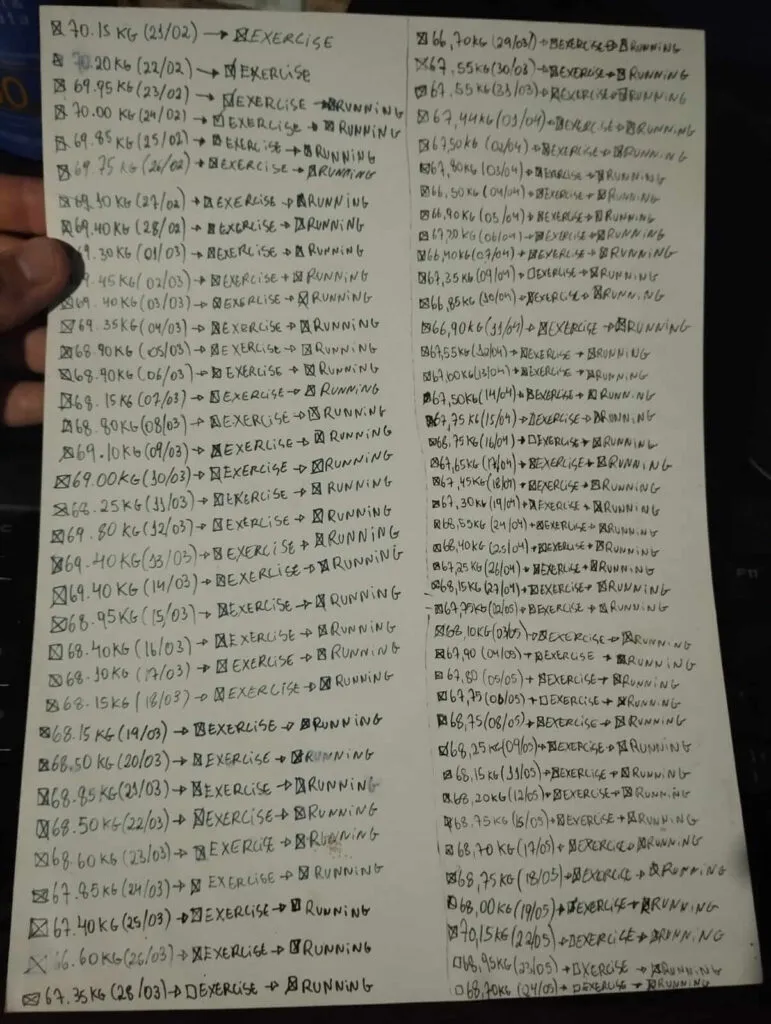 ☒ 70.15 KG (21/02) → ☒ EXERCISE
☒ 70.20 KG (22/02) → ☒ EXERCISE
☒ 69.95 KG (23/02) → ☒ EXERCISE → ☒ RUNNING
☒ 70.00 KG (24/02) → ☒ EXERCISE → ☒ RUNNING
☒ 69.85 KG (25/02) → ☒ EXERCISE → ☒ RUNNING
☒ 69.75 KG (26/02) → ☒ EXERCISE → ☒ RUNNING
☒ 69.10 KG (27/02) → ☒ EXERCISE → ☒ RUNNING
☒ 69.40 KG (28/02) → ☒ EXERCISE → ☒ RUNNING
9.30 KG (01/03) → ☒ EXERCISE → ☒ RUNNING
9.45 KG (02/03) → ☒ EXERCISE → ☒ RUNNING
☒ 69.40 KG (03/03) → ☒ EXERCISE → ☒ RUNNING
☒ 69.35 KG (04/03) → ☒ EXERCISE → ☒ RUNNING
☒ 68.90 KG (05/03) → ☒ EXERCISE → ☒ RUNNING
☒ 68.90 KG (06/03) → ☒ EXERCISE → ☒ RUNNING
☒ 68.15 KG (07/03) → ☒ EXERCISE → ☒ RUNNING
☒ 68.80 KG (08/03) → ☒ EXERCISE → ☒ RUNNING
☒ 69.10 KG (09/03) → ☒ EXERCISE → ☒ RUNNING
☒ 69.00 KG (10/03) → ☒ EXERCISE → ☒ RUNNING
☒ 68.25 KG (11/03) → ☒ EXERCISE → ☒ RUNNING
☒ 69.80 KG (12/03) → ☒ EXERCISE → ☒ RUNNING
☒ 69.40 KG (13/03) → ☒ EXERCISE → ☒ RUNNING
☒ 69.40 KG (14/03) → ☒ EXERCISE → ☒ RUNNING
☒ 68.95 KG (15/03) → ☒ EXERCISE → ☒ RUNNING
☒ 68.40 KG (16/03) → ☒ EXERCISE → ☒ RUNNING
☒ 68.10 KG (17/03) → ☒ EXERCISE → ☒ RUNNING
☒ 68.15 KG (18/03) → ☒ EXERCISE → ☒ RUNNING
☒ 68.15 KG (19/03) → ☒ EXERCISE → ☒ RUNNING
☒ 68.50 KG (20/03) → ☒ EXERCISE → ☒ RUNNING
☒ 68.85 KG (21/03) → ☒ EXERCISE → ☒ RUNNING
☒ 68.50 KG (22/03) → ☒ EXERCISE → ☒ RUNNING
☒ 68.60 KG (23/03) → ☒ EXERCISE → ☒ RUNNING
☒ 67.85 KG (24/03) → ☒ EXERCISE → ☒ RUNNING
☒ 67.40 KG (25/03) → ☒ EXERCISE → ☒ RUNNING
☒ 66.60 KG (26/03) → ☒ EXERCISE → ☒ RUNNING
☒ 67.35 KG (28/03) → ☐ EXERCISE → ☒ RUNNING
☒ 66,70 KG (29/03) → ☒ EXERCISE → ☒ RUNNING
☒ 67,55 KG (30/03) → ☒ EXERCISE → ☒ RUNNING
☒ 67,55 KG (31/03) → ☒ EXERCISE → ☒ RUNNING
☒ 67,44 KG (01/04) → ☒ EXERCISE → ☒ RUNNING
☒ 67,50 KG (02/04) → ☒ EXERCISE → ☒ RUNNING
☒ 67,90 KG (03/04) → ☒ EXERCISE → ☒ RUNNING
☒ 66,50 KG (04/04) → ☒ EXERCISE → ☒ RUNNING
☒ 66,90 KG (05/04) → ☒ EXERCISE → ☒ RUNNING
☒ 67,20 KG (06/04) → ☒ EXERCISE → ☒ RUNNING
☒ 66,40 KG (07/04) → ☒ EXERCISE → ☒ RUNNING
☒ 67,35 KG (09/04) → ☐ EXERCISE → ☒ RUNNING
☒ 66,85 KG (10/04) → ☒ EXERCISE → ☒ RUNNING
☒ 66,90 KG (11/04) → ☒ EXERCISE → ☒ RUNNING
☒ 67,55 KG (12/04) → ☒ EXERCISE → ☒ RUNNING
☒ 67,00 KG (13/04) → ☒ EXERCISE → ☒ RUNNING
☒ 67,50 KG (14/04) → ☒ EXERCISE → ☒ RUNNING
☒ 67,75 KG (15/04) → ☐ EXERCISE → ☒ RUNNING
☒ 68,75 KG (16/04) → ☐ EXERCISE → ☒ RUNNING
☒ 67,65 KG (17/04) → ☒ EXERCISE → ☒ RUNNING
☒ 67,45 KG (18/04) → ☒ EXERCISE → ☒ RUNNING
☒ 67,30 KG (19/04) → ☒ EXERCISE → ☒ RUNNING
☒ 68,55 KG (24/04) → ☒ EXERCISE → ☒ RUNNING
☒ 68,40 KG (25/04) → ☐ EXERCISE → ☒ RUNNING
☒ 67,25 KG (26/04) → ☒ EXERCISE → ☒ RUNNING
☒ 68,15 KG (27/04) → ☒ EXERCISE → ☒ RUNNING
☒ 67,75 KG (02/05) → ☒ EXERCISE → ☒ RUNNING
☒ 68,10 KG (03/05) → ☒ EXERCISE → ☒ RUNNING
☒ 67,90 (04/05) → ☒ EXERCISE → ☒ RUNNING
☒ 67,80 (05/05) → ☒ EXERCISE → ☒ RUNNING
☒ 67,75 (06/05) → ☐ EXERCISE → ☒ RUNNING
☒ 68,75 (08/05) → ☒ EXERCISE → ☒ RUNNING
☒ 68,25 KG (09/05) → ☒ EXERCISE → ☒ RUNNING
☒ 68,15 KG (11/05) → ☒ EXERCISE → ☒ RUNNING
☒ 68,20 KG (12/05) → ☒ EXERCISE → ☒ RUNNING
☒ 68,75 KG (15/05) → ☒ EXERCISE → ☒ RUNNING
☒ 68,70 KG (17/05) → ☒ EXERCISE → ☒ RUNNING
☒ 68,75 KG (18/05) → ☒ EXERCISE → ☒ RUNNING
☒ 68,00 KG (19/05) → ☒ EXERCISE → ☒ RUNNING
☒ 70,15 KG (22/05) → ☒ EXERCISE → ☒ RUNNING
☐ 68,95 KG (23/05) → ☐ EXERCISE → ☒ RUNNING
☐ 68,70 KG (24/05) → ☐ EXERCISE → ☒ RUNNING